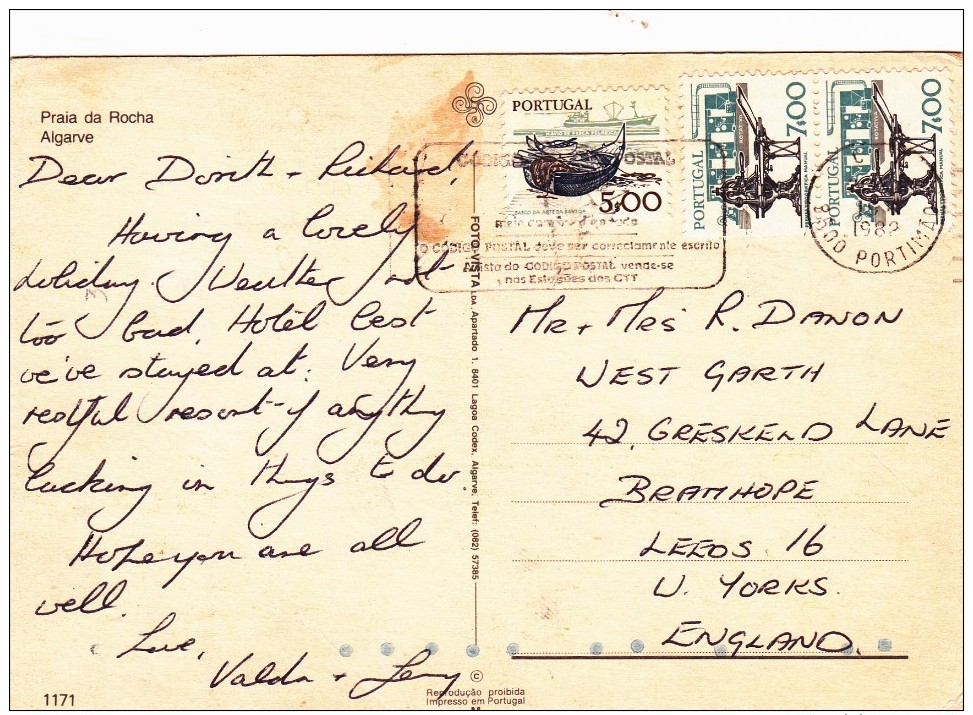 Praia da Rocha
Algarve
Dear Dorith + Richard,
Having a lovely
holiday. Weather not
too bad. Hotel best
we've stayed at. Very
restful resort - if anything
lacking in things to do.
Hope you are all
well.
Love,
Valda +
1171
FOTO-VISTA LDA. Apartado 1. 8401 Lagoa Codex, Algarve, Telef: (082) 57385
©
Reprodução proibida
Impresso em Portugal
PORTUGAL
NAVIO DE PESCA PELÁGICA
BARCO DA ARTE DA XÁVEGA
5$00
PORTUGAL
ROTATIVA
7$00
PORTUGAL
ROTATIVA
IMPRENSA MANUAL
7$00
CÓDIGO POSTAL
meio caminho andado
O CÓDIGO POSTAL deve ser correctamente escrito
A lista do CÓDIGO POSTAL vende-se
nas Estações dos CTT
1982
8500 PORTIMÃO
MR + MRS R. DANON
WEST GARTH
42, GRESKELD LANE
BRAMHOPE
LEEDS 16
W. YORKS.
ENGLAND.